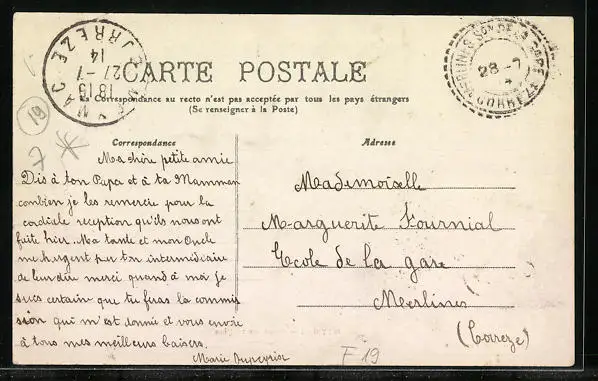 CARTE POSTALE
La Correspondance au recto n'est pas acceptée par tous les pays étrangers
(Se renseigner à la Poste)
Correspondance
Adresse
Ma chère petite amie
Dis à ton Papa et à ta Mamman
combien je les remercie pour la
cordiale reception qu'ils nous ont
faite hier. Ma tante et mon Oncle
me chargent par ton intermédiaire
de leur dire merci quand à moi je
suis certain que tu feras la commis
sion qui m'est donnée et vous envoie
à tous mes meilleurs baisers.
Marie
Mademoiselle
Marguerite Fournial
Ecole de la gare
Merlines
(Correze)
F 19
19
7
CORREZE
27-7
14
28-7